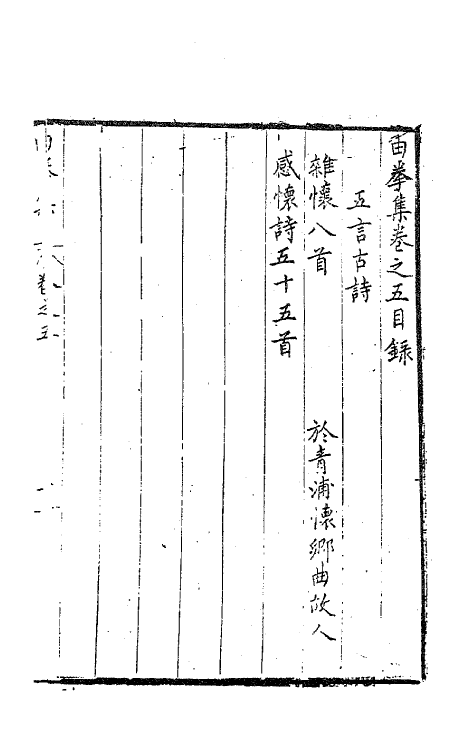 由拳集卷之五目錄
五言古詩
雜懷八首 於青浦懷鄉曲故人
感懷詩五十五首
卷之五